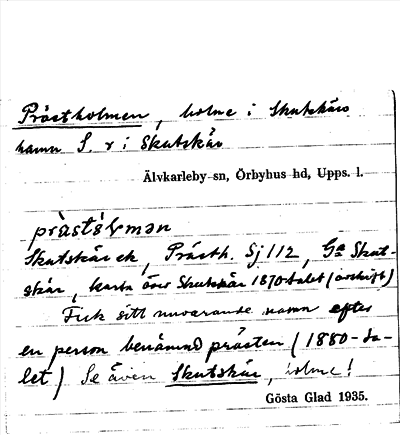 Prästholmen, holme i Skutskärs
hamn S. v i Skutskär
Älvkarleby sn, Örbyhus hd, Upps. l.
Skutskär ek, Prästh. Sj 112, Ga Skut-
skär, karta över Skutskär 1870-talet (avskrift)
Fick sitt nuvarande namn efter
en person benämnd prästen (1880-ta-
let) Se även Skutskär, holme!
Gösta Glad 1935.